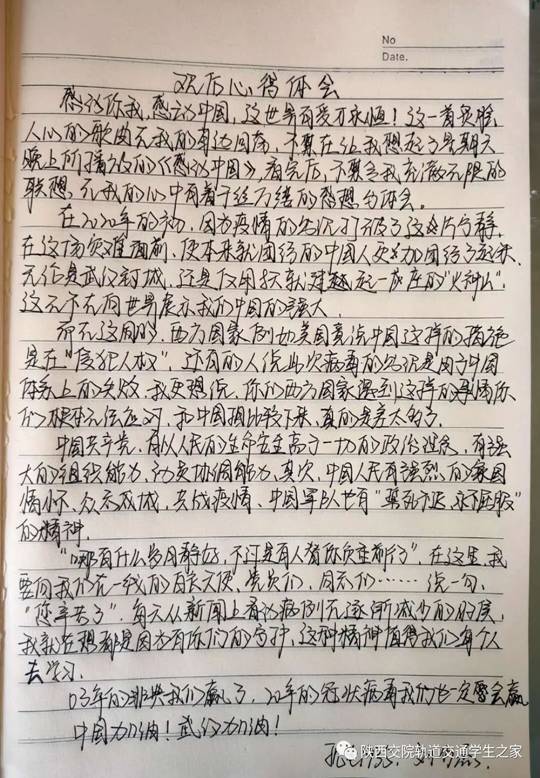 No
Date.
观后心得体会
感动你我,感动中国,这世界有爱才永恒!这一首炙脍
人心的歌曲在我的耳边回荡,不禁在让我想起了是期天
晚上所播放的《感动中国》,看完后,不禁令我充满无限的
联想,在我的心中有着千丝万缕的感想与体会。
在2020年的初,因为疫情的出现打破了这片宁静,
在这场灾难面前,使本来就团结的中国人更加团结了起来,
无论是武汉封城,还是仅用 天就建起一座座的"火神山",
这无不在向世界展示我们中国的强大。
而在这同时,西方国家例如美国竟说中国这样的措施
是在"侵犯人权",还有的人说此次病毒的出现是由于中国
体系上的失败,我更想说,你们西方国家遇到这样的事情你
们根本无法应对,和中国相比较下来,真的是差太多了。
中国共产党,有以人民的生命安全高于一切的政治理念,有强
大的组织能力、动员协调能力,其次,中国人民有强烈的家国
情怀、众志成城,共战疫情、中国军队也有"宁死不退,永不屈服"
的精神。
"哪有什么岁月静好,不过是有人替你负重前行",在这里,我
要向我们在一线的白衣天使,警察们,同志们……说一句,
"您辛苦了",每天从新闻上看到病例在逐渐减少的时候,
我就在想都是因为有你们的守护,这种精神值得我们每个人
去学习.
03年的非典我们赢了,20年的冠状病毒我们也一定要会赢
中国加油!武汉加油!
陕西交院轨道交通学生之家